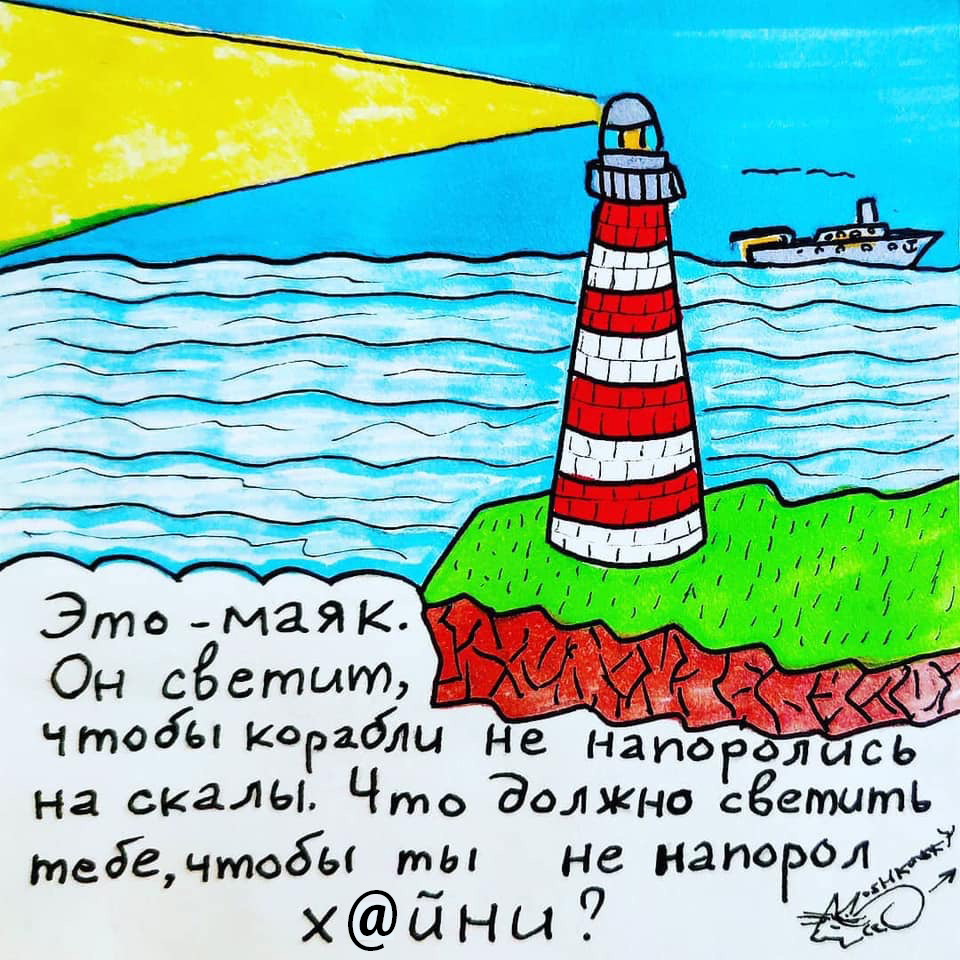 Это - маяк.
Он светит,
чтобы корабли не напоролись
на скалы. Что должно светить
тебе, чтобы ты не напорол
х@йни?